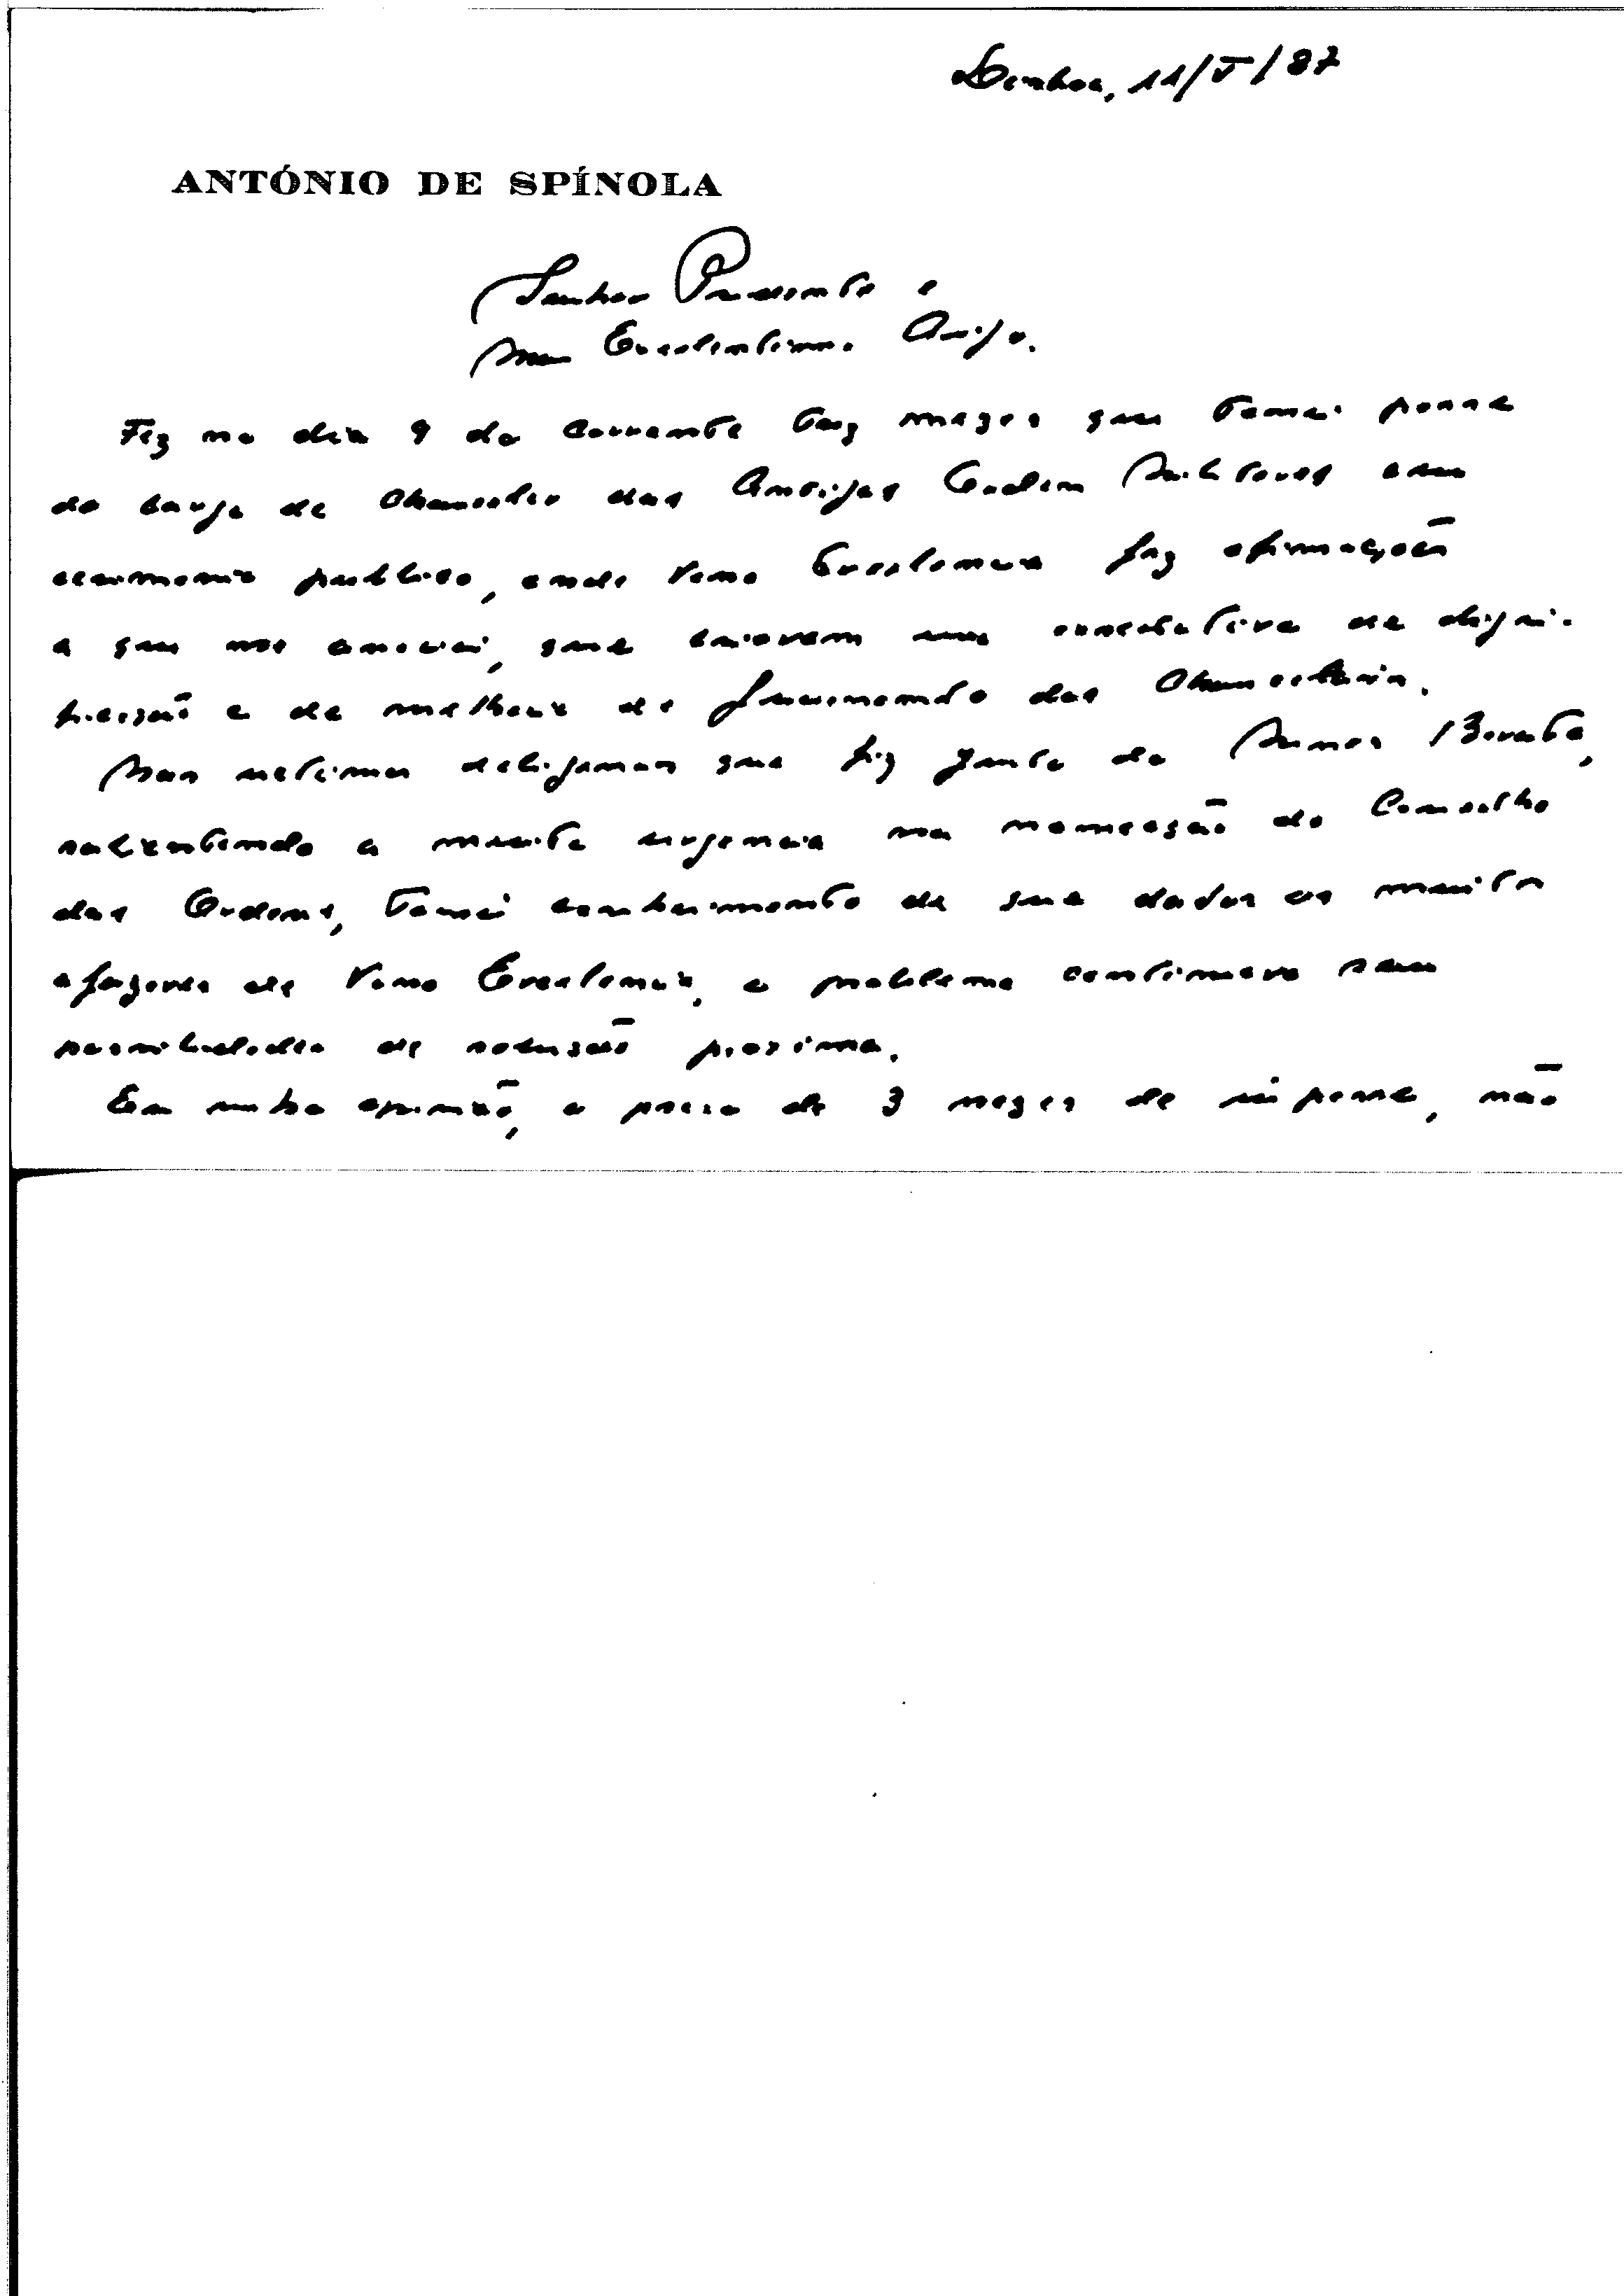 Lisboa, 11/V/87
ANTÓNIO DE SPÍNOLA
Senhor Presidente e
meu Excelentíssimo Amigo.
Fez no dia 9 do corrente trez mezes que tomei posse
do cargo de Chanceler das Antigas Ordens Militares em
cerimonia publica, onde Vossa Excelencia fez afirmações
a que me associei, que criaram uma expectativa de digni-
ficação e de melhoria do funcionamento das Chancelaria.
Nas ultimas deligencias que fiz junto do Nunes Barata,
salientando a muita urgencia na nomeação do Conselho
das Ordens, tomei conhecimento de que dados os muitos
afazeres de Vossa Excelencia, o problema continuava sem
possibilidades de solução proxima.
Em minha opinião, o prazo de 3 mezes de posse, não